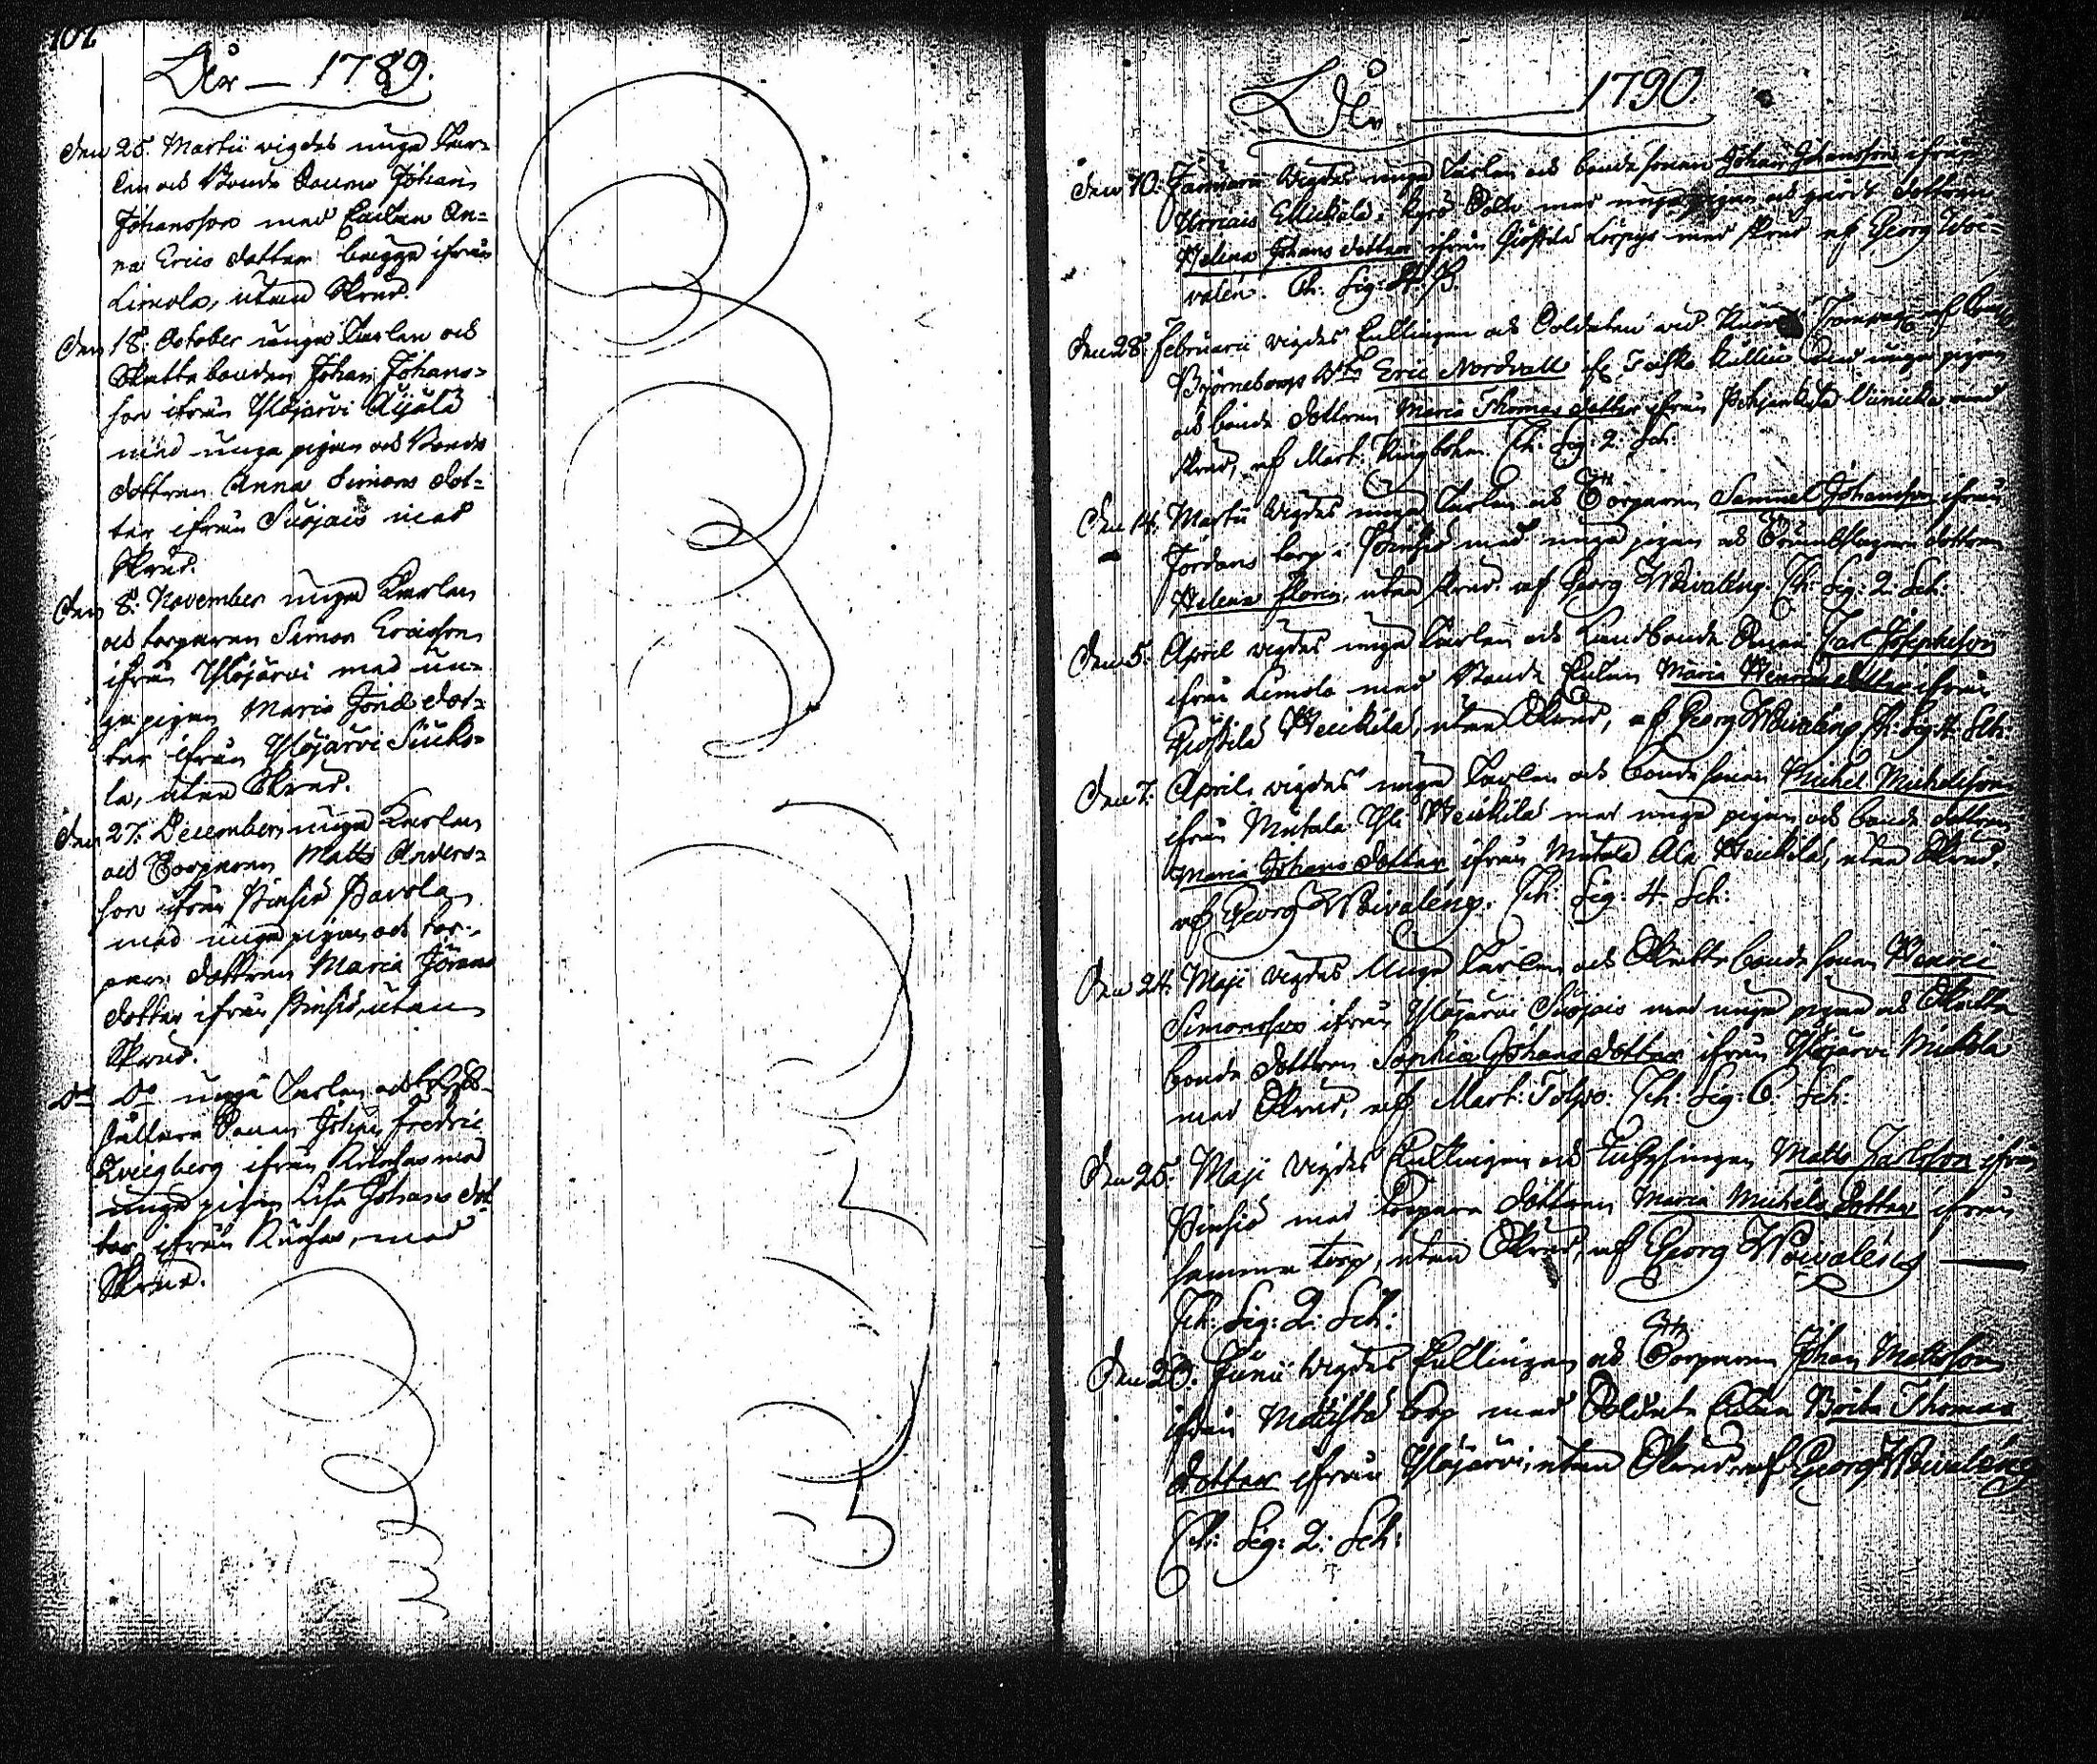 102
År — 1789.
Den 25. Martii vigdes unga Karlen
och Bonde Sonen Johan
Johansson med Enkan An=
na Erics dotter bägge ifrån
Limola, utan Skrud.
Den 18. October unga Karlen och
Skatte bonden Johan Johans=
son ifrån Ylöjärvi Äijälä
med unga pigan och Bonde
dottren Anna Simons dot=
ter ifrån Suojais med
Skrud.
Den 8. November unga Karlen
och torparen Simon Ericsson
ifrån Ylöjärvi med un=
ga pigan Maria Jons dot=
ter ifrån Ylöjärvi Siuko=
la, utan Skrud.
Den 27. December unga Karlen
och Torparen Matts Anders=
son ifrån Pinsiö Pavola
med unga pigan och tor=
pare dottren Maria Jörans
dotter ifrån Pinsiö, utan
Skrud.
Dn Do unga Karlen och
Sonen Johan Fredric
ifrån med
unga pigan Lisa Johans dot
ter ifrån med
Skrud.
År 1790.
Den 10. Januarii Vigdes unga Karlen och bonde sonen Johan Johansson ifrån
Kyro med unga pigan och dottren
Helena Johans dotter ifrån med skrud af Georg Woi=
valén. Ch. Sig:
Den 28. Februarii vigdes Enklingen och Soldaten vid af
Björneborgs Eric Nordvall med unga pigan
och bonde dottren Maria Thomas dotter ifrån med
skrud, af Mart. Ringbohm. Ch: Sig: 2. Sch:
Den 14. Martii Vigdes unga Karlen och Torparen Samuel Johansson ifrån
Jordans torp i Pinsiö med unga pigan och dottren
Helena Florin, utan skrud. af Georg Woivaléng. Ch: Sig: 2. Sch:
Den 5. April vigdes unga Karlen och Landbonde Sonen Carl Josephsson
ifrån Limola med Bonde Enkan Maria Henrics dotter ifrån
Heikilä, utan Skrud, af Georg Woivaléng Ch: Sig: 4. Sch:
Den 7. April vigdes unga Karlen och bonde sonen Michel Michelsson
ifrån Mutala Yli Heikilä med unga pigan och bonde dottren
Maria Johans dotter ifrån Mutala Ala Heikilä, utan Skrud.
af Georg Woivaléng. Ch: Sig: 4. Sch:
Den 24. Maji vigdes Unga Karlen och Skatte bonde sonen Henric
Simonsson ifrån Ylöjärvi Suojais med unga pigan och Skatte
bonde dottren Sophia Johans dotter ifrån Ylöjärvi Mikola
med Skrud, af Mart: Tolpo. Ch: Sig: 6. Sch:
Den 25. Maji Vigdes Enklingen och Matts Carlsson ifrån
Pinsiö med torpare dottren Maria Michels dotter ifrån
samma torp, utan Skrud, af Georg Woivaléng —
Ch: Sig: 2: Sch:
Den 20. Junii vigdes Enklingen och Torparen Johan Mattsson
ifrån torp med Soldate Enkan Brita Thomas
dotter ifrån Ylöjärvi, utan Skrud, af Georg Woivaléng
Ch: Sig: 2: Sch: